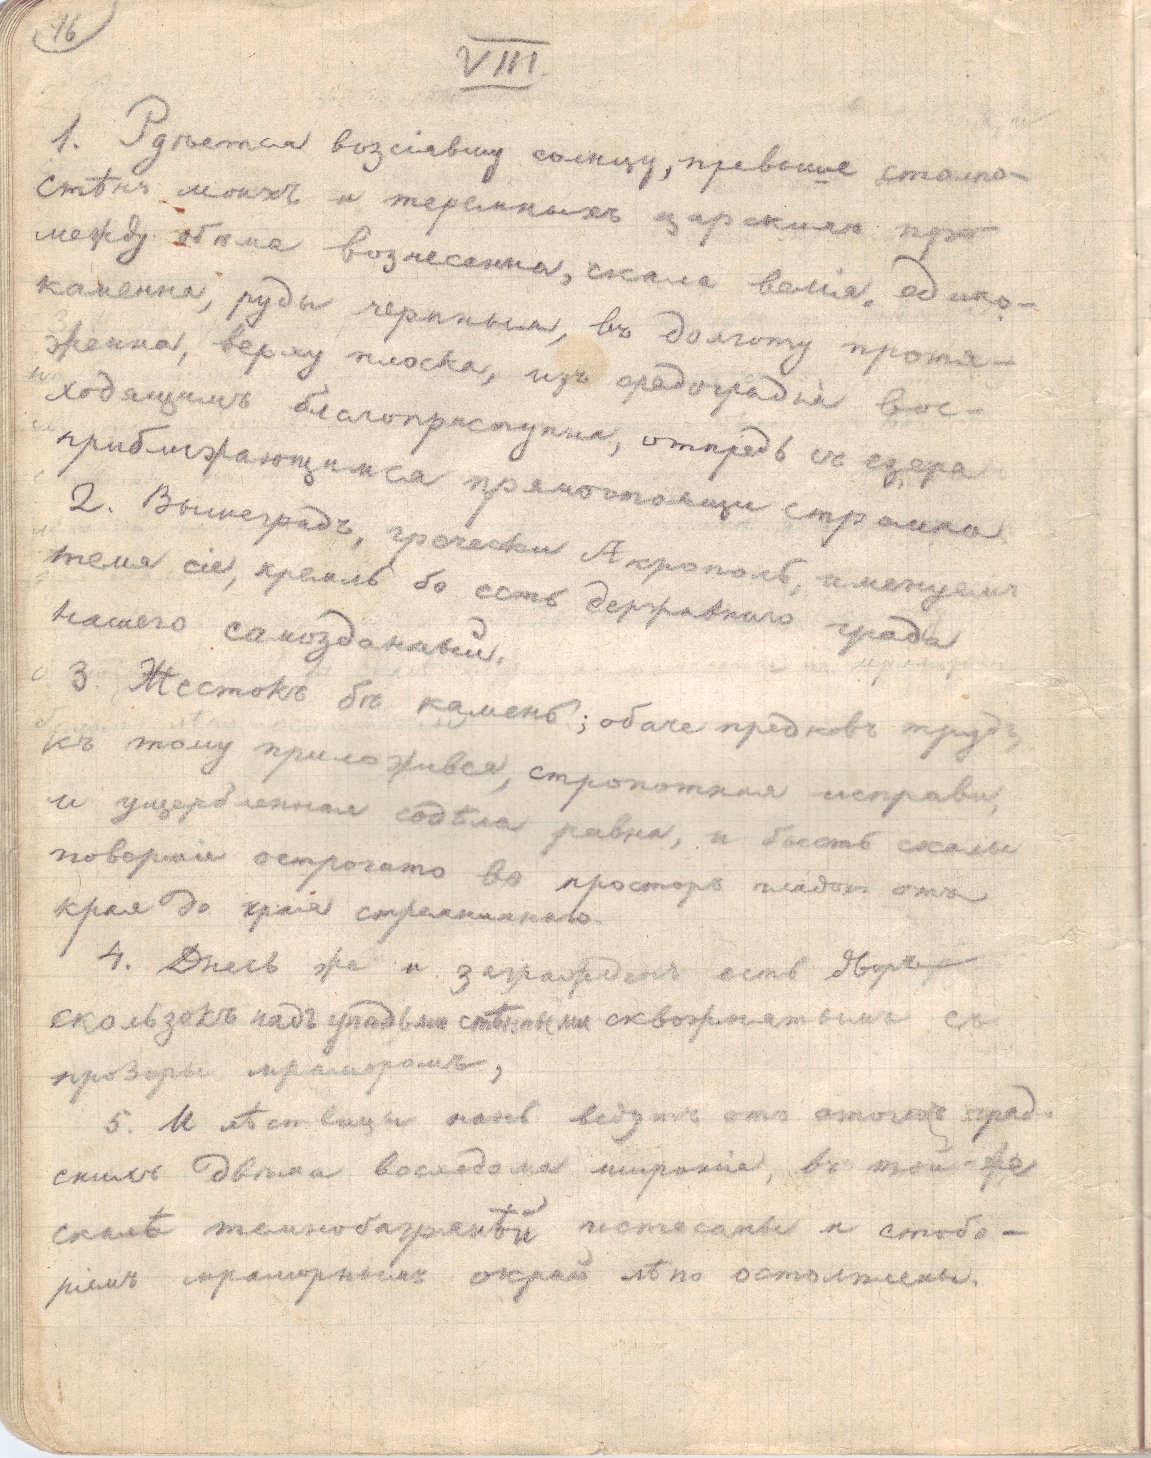 16
VIII.
1. Рдѣется возсіявшу солнцу, превыше столпо-
стѣнъ моихъ и теремныхъ царскихъ
между обѣма вознесенна, скала велія, едино-
каменна, руды чермныя, въ долготу протя-
женна, верху плоска, изъ средоградія вос-
ходящимъ благоприступна, отпредь съ езера
приближающимся прямостоящи стремна
2. Вышеградъ, гречески Акрополь, именуемъ
темя сіе, кремль бо есть державнаго града
нашего самозданный.
3 Жестокъ бѣ камень; обаче предковъ трудъ,
къ тому приложився, стропотная исправи,
и ущербленная содѣла равна, и бысть скалы
поверхіе острогато во просторъ гладокъ отъ
края до края стремниннаго.
4. Днесь же и загражденъ есть дворъ
скользокъ надъ упадьми стѣнными сквожнатымъ съ
прозоры мраморомъ,
5. И лѣствицы нань ведутъ отъ стогнъ град-
скихъ двѣма восходома широкіе, въ той-же
скалѣ темнобагряной истесаны и стобо-
ріемъ мраморнымъ окрай лѣпо остолплены.